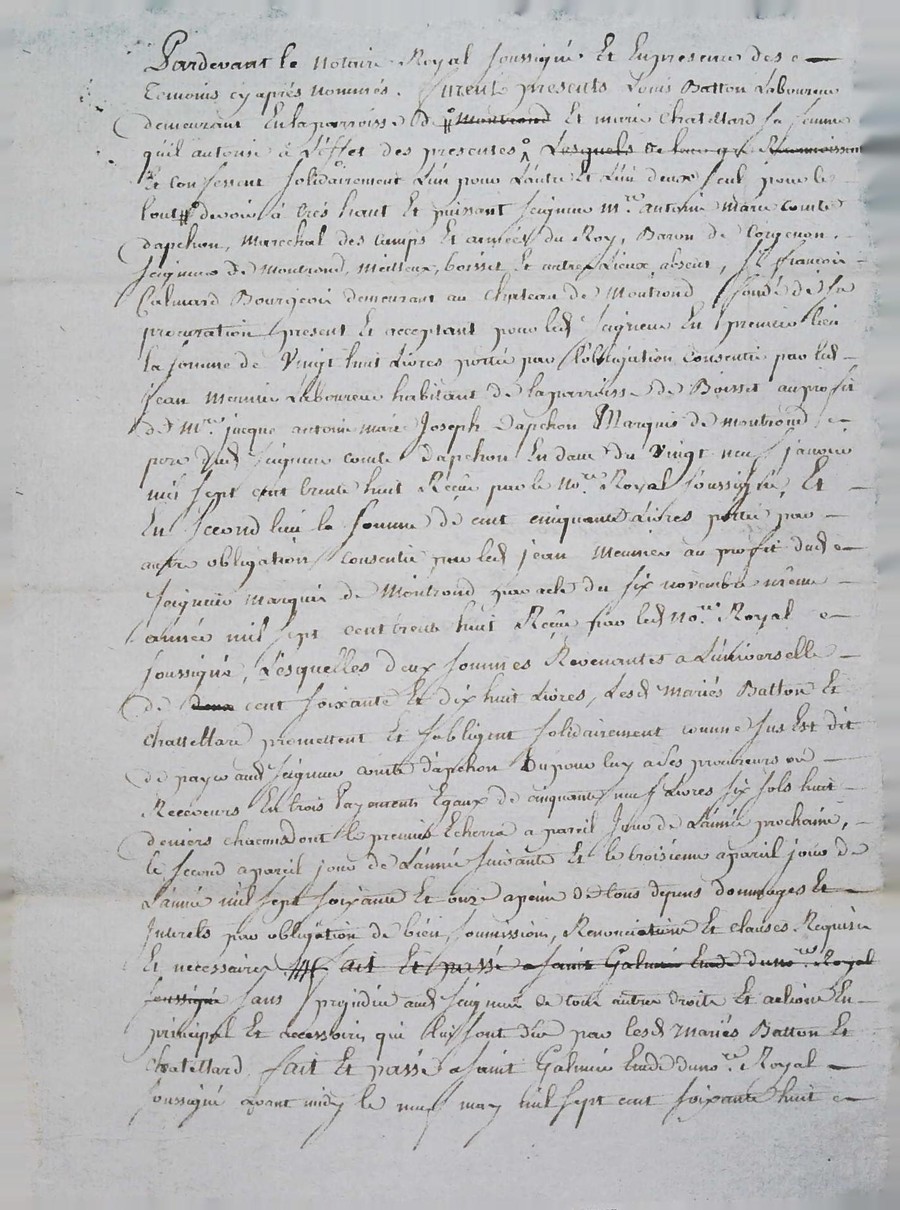 Pardevant le notaire Royal soussigné Et En presence des
Temoins cy aprés nommés. furent presents Louis Batton Laboureur
demeurant En la parroisse de # montrond Et marie Chatellard sa femme
quil autorise à L'effet des presentes Lesquels de leur gré Reconnoissent
Et confessent solidairement L'un pour L'autre Et L'un deux seul pour le
tout # devoir à trés haut Et puissant seigneur m.re antoine marie comte
dapchon, marechal des camps Et armées du Roy, Baron de Corgenon,
seigneur de montrond, meilleux, boisset Et autres Lieux, absent, Sr françois
Calmard Bourgeois demeurant au chateau de Montrond fondé de sa
procuration present Et acceptant pour led seigneur En premier lieu
la somme de vingt huit Livres portée par l'obligation consentie par led
jean meunier Laboureur habitant de la parroisse de Boisset au profit
de M.re jacque antoine marie Joseph dapchon Marquis de montrond
pere dud seigneur comte dapchon En datte du vingt neuf janvier
mil sept cent trente huit Reçue par le no.re Royal soussigné, Et
En second lieu la somme de cent cinquante Livres portée par
autre obligation consentie par led jean meunier au profit dud
seigneur marquis de Montrond par acte du six novembre même
année mil sept cent trente huit Reçue par led no.re Royal
soussigné, Lesquelles deux sommes Revenantes a L'universelle
de deux cent soixante Et dix huit Livres, Lesd mariés Batton Et
Chattellard promettent Et sobligent solidairement comme sus Est dit
de payer aud seigneur comte dapchon Ou pour luy a ses procureurs ou
Receveurs En trois Payements Egaux de cinquante neuf Livres six sols huit
deniers chacun dont le premier Echerra a pareil Jour de L'année prochaine,
le second a pareil jour de L'année suivante Et le troisieme a pareil jour de
L'année mil sept soixante Et onze a peine de tous depens dommages Et
Interets par obligation de biens, soumissions, Renonciations Et clauses Requises
Et necessaires fait Et passé a saint Galmier Etude du no.re Royal
soussigné sans prejudice aud seigneur de tous autres droits Et actions En
principal Et accessoires qui luy sont dus par lesd mariés Batton Et
Chatellard. fait Et passé a saint Galmier Etude du no.re Royal
soussigné avant midy le neuf may mil sept cent soixante huit